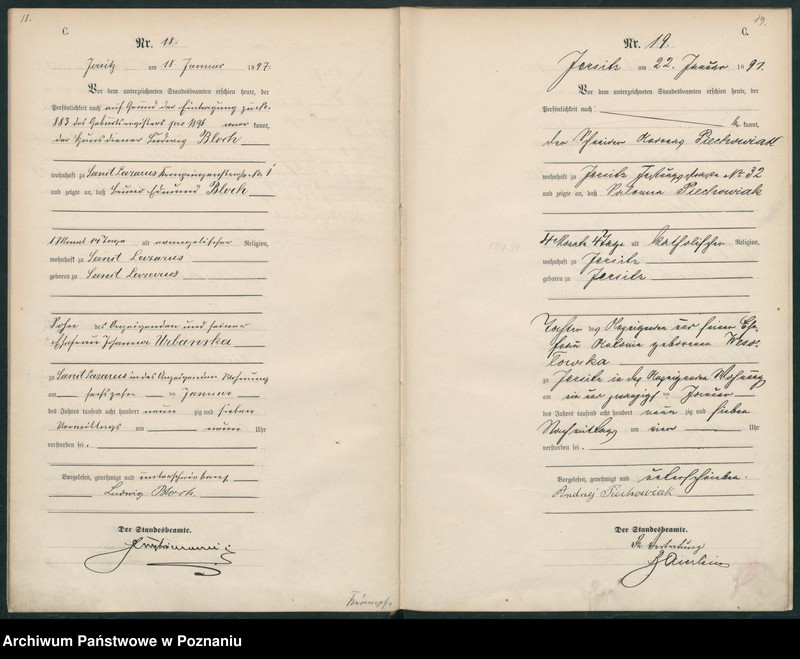 18.
C.
Nr. 18.
Jersitz am 18 Januar 1897.
Vor dem unterzeichneten Standesbeamten erschien heute, der
Persönlichkeit nach auf Grund der Eintragung zu Nr.
883 des Geburtsregisters pro 1896 kannt,
der Hausdiener Ludwig Bloch
wohnhaft zu Sankt Lazarus
und zeigte an, daß Bruno Edmund Bloch
1 Monat 14 Tage alt evangelischer Religion,
wohnhaft zu Sankt Lazarus
geboren zu Sankt Lazarus
Sohn des Anzeigenden und seiner
Ehefrau Johanna Urbanska
zu Sankt Lazarus in des Anzeigenden Wohnung
am sechszehn ten Januar
des Jahres tausend acht hundert neun zig und sieben
Vormittags um neun Uhr
verstorben sei.
Vorgelesen, genehmigt und unterschrieben
Ludwig Bloch
Der Standesbeamte.
19.
C.
Nr. 19.
Jersitz am 22. Januar 1897.
Vor dem unterzeichneten Standesbeamten erschien heute, der
Persönlichkeit nach
be kannt,
der Andreas Piechowiak
wohnhaft zu Jersitz No 32
und zeigte an, daß Piechowiak
4 Monate 4 Tage alt katholischer Religion,
wohnhaft zu Jersitz
geboren zu Jersitz
Tochter des Anzeigenden und seiner Ehe-
frau geborenen Weso-
lowska
zu Jersitz in des Anzeigenden Wohnung
am ein und zwanzigsten Januar
des Jahres tausend acht hundert neun zig und sieben
Nachmittags um vier Uhr
verstorben sei.
Vorgelesen, genehmigt und unterschrieben.
Andrzej Piechowiak
Der Standesbeamte.
In Vertretung
Archiwum Państwowe w Poznaniu